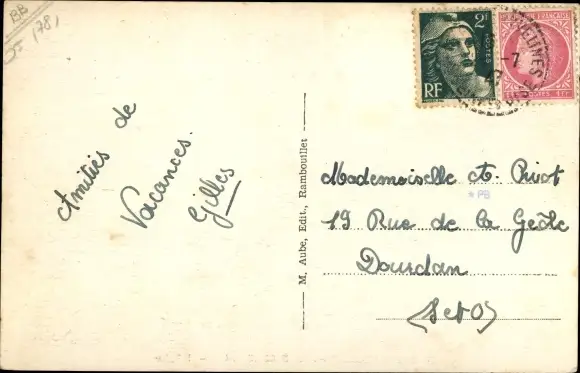 BB
(78)
Amitiés de
Vacances.
Gilles
M. Aube, Edit., Rambouillet
2F
POSTES
RF
-7
Mademoiselle A. Pivot
PB
19 Rue de la Geôle
Dourdan
(S et O)